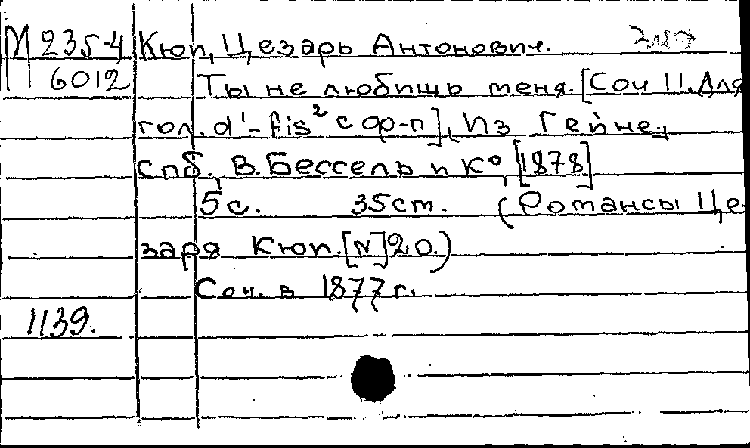 М 235-4 Кюи, Цезарь Антонович.
6012 Ты не любишь меня. [Соч 11. Для
гол. d'-fis² с ф-п], Из Гейне.
Спб., В. Бессель и К°, [1878]
5 с. 35 ст. (Романсы Це-
заря Кюи. [N] 20.)
Соч. в 1877 г.
1139.